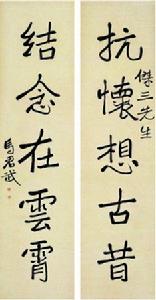 抗懷想古昔
傑三先生
結念在雲霄
馬君武